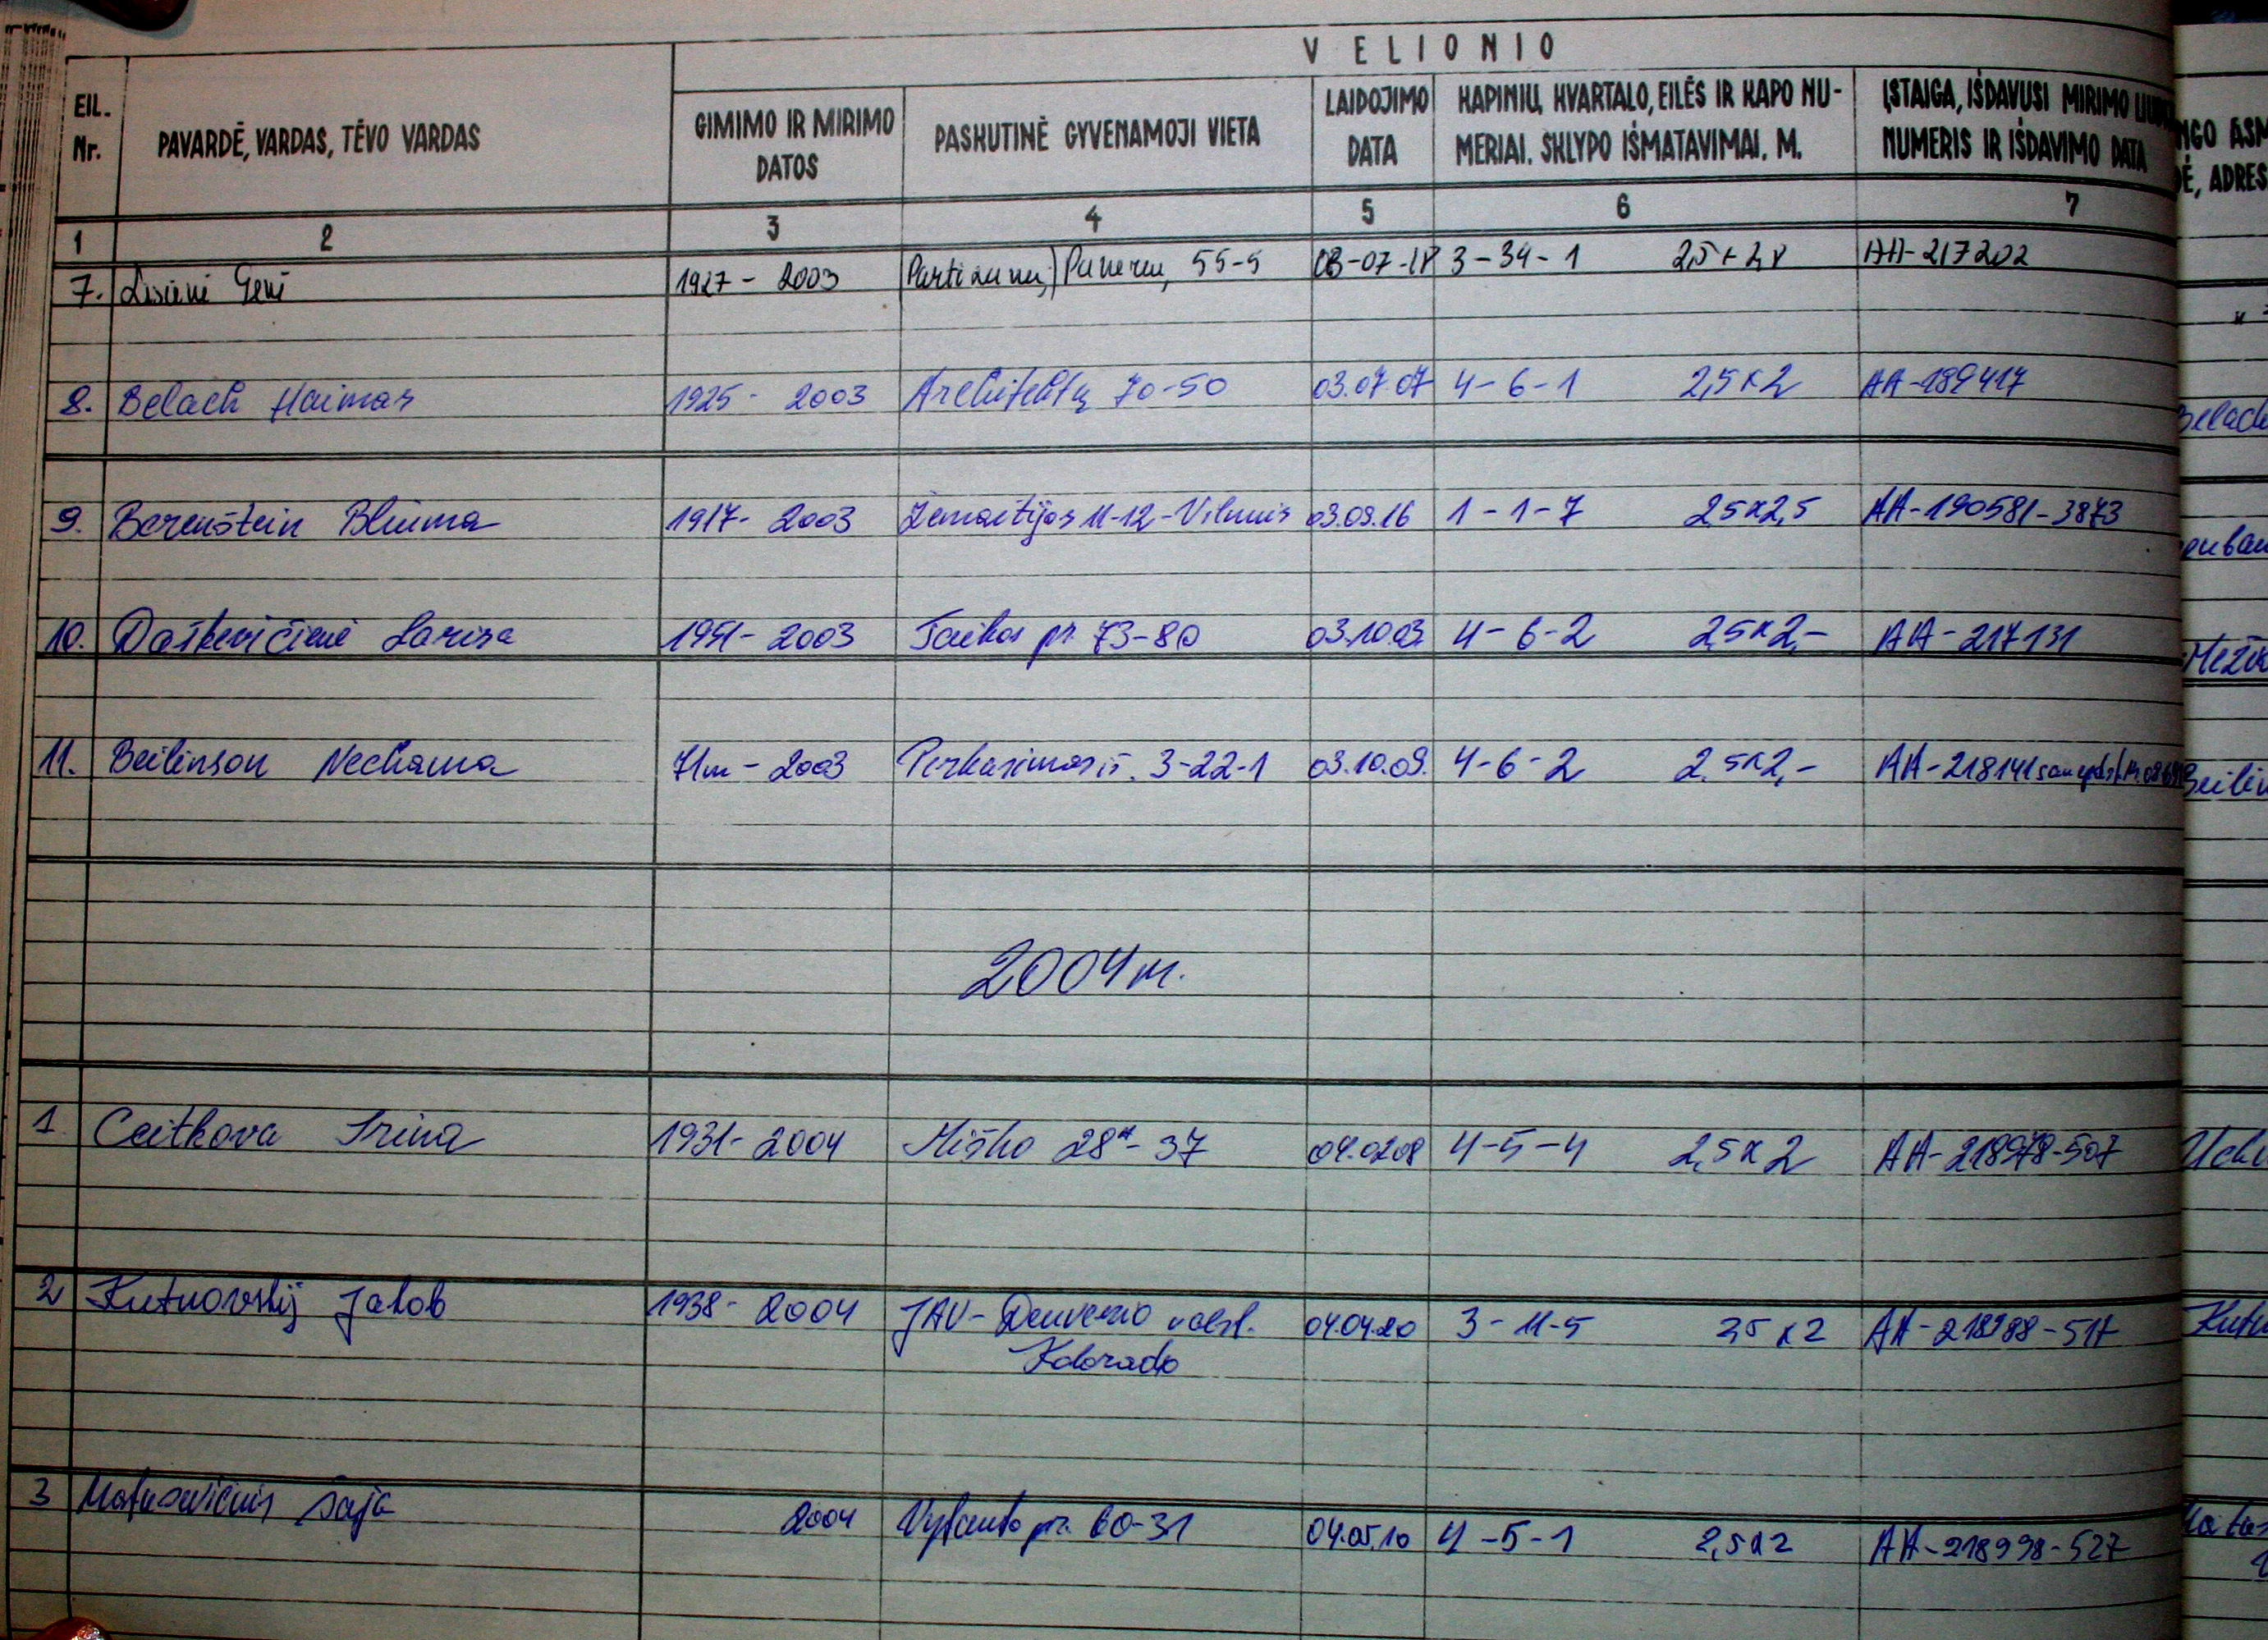 VELIONIO
EIL. Nr.
PAVARDĖ, VARDAS, TĖVO VARDAS
GIMIMO IR MIRIMO DATOS
PASKUTINĖ GYVENAMOJI VIETA
LAIDOJIMO DATA
KAPINIŲ, KVARTALO, EILĖS IR KAPO NU-
MERIAI. SKLYPO IŠMATAVIMAI, M.
ĮSTAIGA, IŠDAVUSI MIRIMO
NUMERIS IR IŠDAVIMO DATA
1 2 3 4 5 6 7
7. 1927 - 2003 Panerių 55-5 03-07-18 3-34-1 AA-217202
8. Belach Haimas 1925 - 2003 Architektų 70-50 03.07.07 4-6-1 2,5x2 AA-189417
9. Berenštein Bliuma 1917- 2003 Žemaitijos 11-12-Vilnius 03.09.16 1-1-7 25x2,5 AA-190581-3873
10. Daškevičienė Larisa 1951- 2003 Taikos pr. 73-80 03.10.03 4-6-2 2,5x2,- AA-217131
11. Beilinson Nechama 71m - 2003 3-22-1 03.10.09. 4-6-2 2,5x2,- AA-218141
2004 m.
1 Ceitkova Irina 1931- 2004 Miško 28-37 04.02.08 4-5-4 2,5x2 AA-218978-507
2 Kutnovskij Jakob 1938- 2004 JAV- Denverio valst. 04.04.20 3-11-5 25x2 AA-218988-517
Kolorado
3 Matusevičius Saja 2004 Vytauto pr. 60-31 04.05.10 4-5-1 2,5x2 AA-218998-527